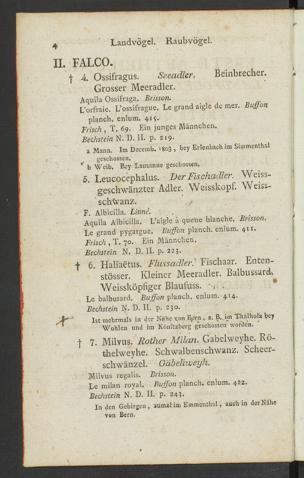 4 Landvögel. Raubvögel.
II. FALCO.
† 4. Ossifragus. Seeadler. Beinbrecher.
Grosser Meeradler.
Aquila Ossifraga. Brisson.
L'orfraie. L'ossifrague. Le grand aigle de mer. Buffon
planch. enlum. 415.
Frisch, T. 69. Ein junges Männchen.
Bechstein N. D. II. p. 219.
a Mann. Im Decemb. 1803, bey Erlenbach im Simmenthal
geschossen.
b Weib. Bey Lausanne geschossen.
5. Leucocephalus. Der Fischadler. Weiss-
geschwänzter Adler. Weisskopf. Weiss-
schwanz.
F. Albicilla. Linné.
Aquila Albicilla. L'aigle à queue blanche. Brisson.
Le grand pygargue. Buffon planch. enlum. 411.
Frisch, T. 70. Ein Männchen.
Bechstein N. D. II. p. 223.
† 6. Haliaëtus. Flussadler. Fischaar. Enten-
stösser. Kleiner Meeradler. Balbussard.
Weissköpfiger Blaufuss.
Le balbusard. Buffon planch. enlum. 414.
Bechstein N. D. II. p. 230.
Ist mehrmals in der Nähe von Bern, z. B. im Thalholz bey
Wohlen und im Könitzberg geschossen worden.
† 7. Milvus. Rother Milan. Gabelweyhe. Rö-
thelweyhe. Schwalbenschwanz. Scheer-
schwänzel. Gäbeliweyh.
Milvus regalis. Brisson.
Le milan royal. Buffon planch. enlum. 422.
Bechstein N. D. II. p. 243.
In den Gebirgen, zumal im Emmenthal, auch in der Nähe
von Bern.